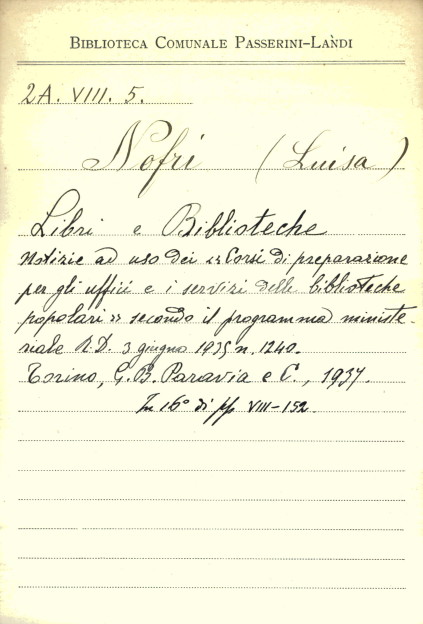 BIBLIOTECA COMUNALE PASSERINI-LANDI
2A. VIII. 5.
Nofri (Luisa)
Libri e Biblioteche
Notizie ad uso dei «Corsi di preparazione
per gli uffici e i servizi delle biblioteche
popolari» secondo il programma ministe-
riale R.D. 3 giugno 1935 n. 1240.
Torino, G.B. Paravia e C., 1937.
In 16° di pp VIII-152.